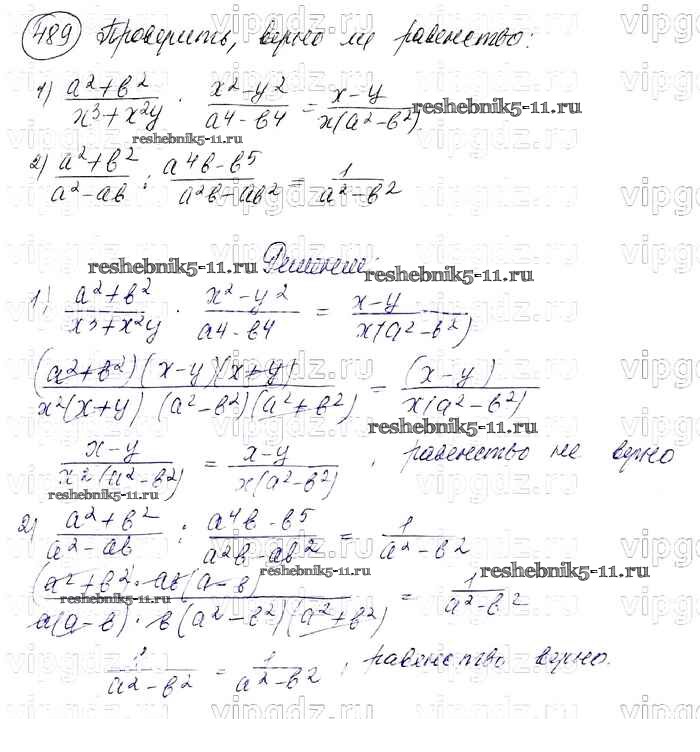 489 Проверить, верно ли равенство:
1) (a² + b²)/(x³ + x²y) · (x² - y²)/(a4 - b4) = (x - y)/(x(a² - b²))
2) (a² + b²)/(a² - ab) : (a4b - b5)/(a²b - ab²) = 1/(a² - b²)
Решение:
1) (a² + b²)/(x³ + x²y) · (x² - y²)/(a4 - b4) = (x - y)/(x(a² - b²))
(a² + b²)(x - y)(x + y)/(x²(x + y)(a² - b²)(a² + b²)) = (x - y)/(x(a² - b²))
(x - y)/(x²(a² - b²)) = (x - y)/(x(a² - b²)), равенство не верно
2) (a² + b²)/(a² - ab) : (a4b - b5)/(a²b - ab²) = 1/(a² - b²)
(a² + b²) · ab(a - b)/(a(a - b) · b(a² - b²)(a² + b²)) = 1/(a² - b²)
1/(a² - b²) = 1/(a² - b²), равенство верно.
vipgdz.ru
reshebnik5-11.ru